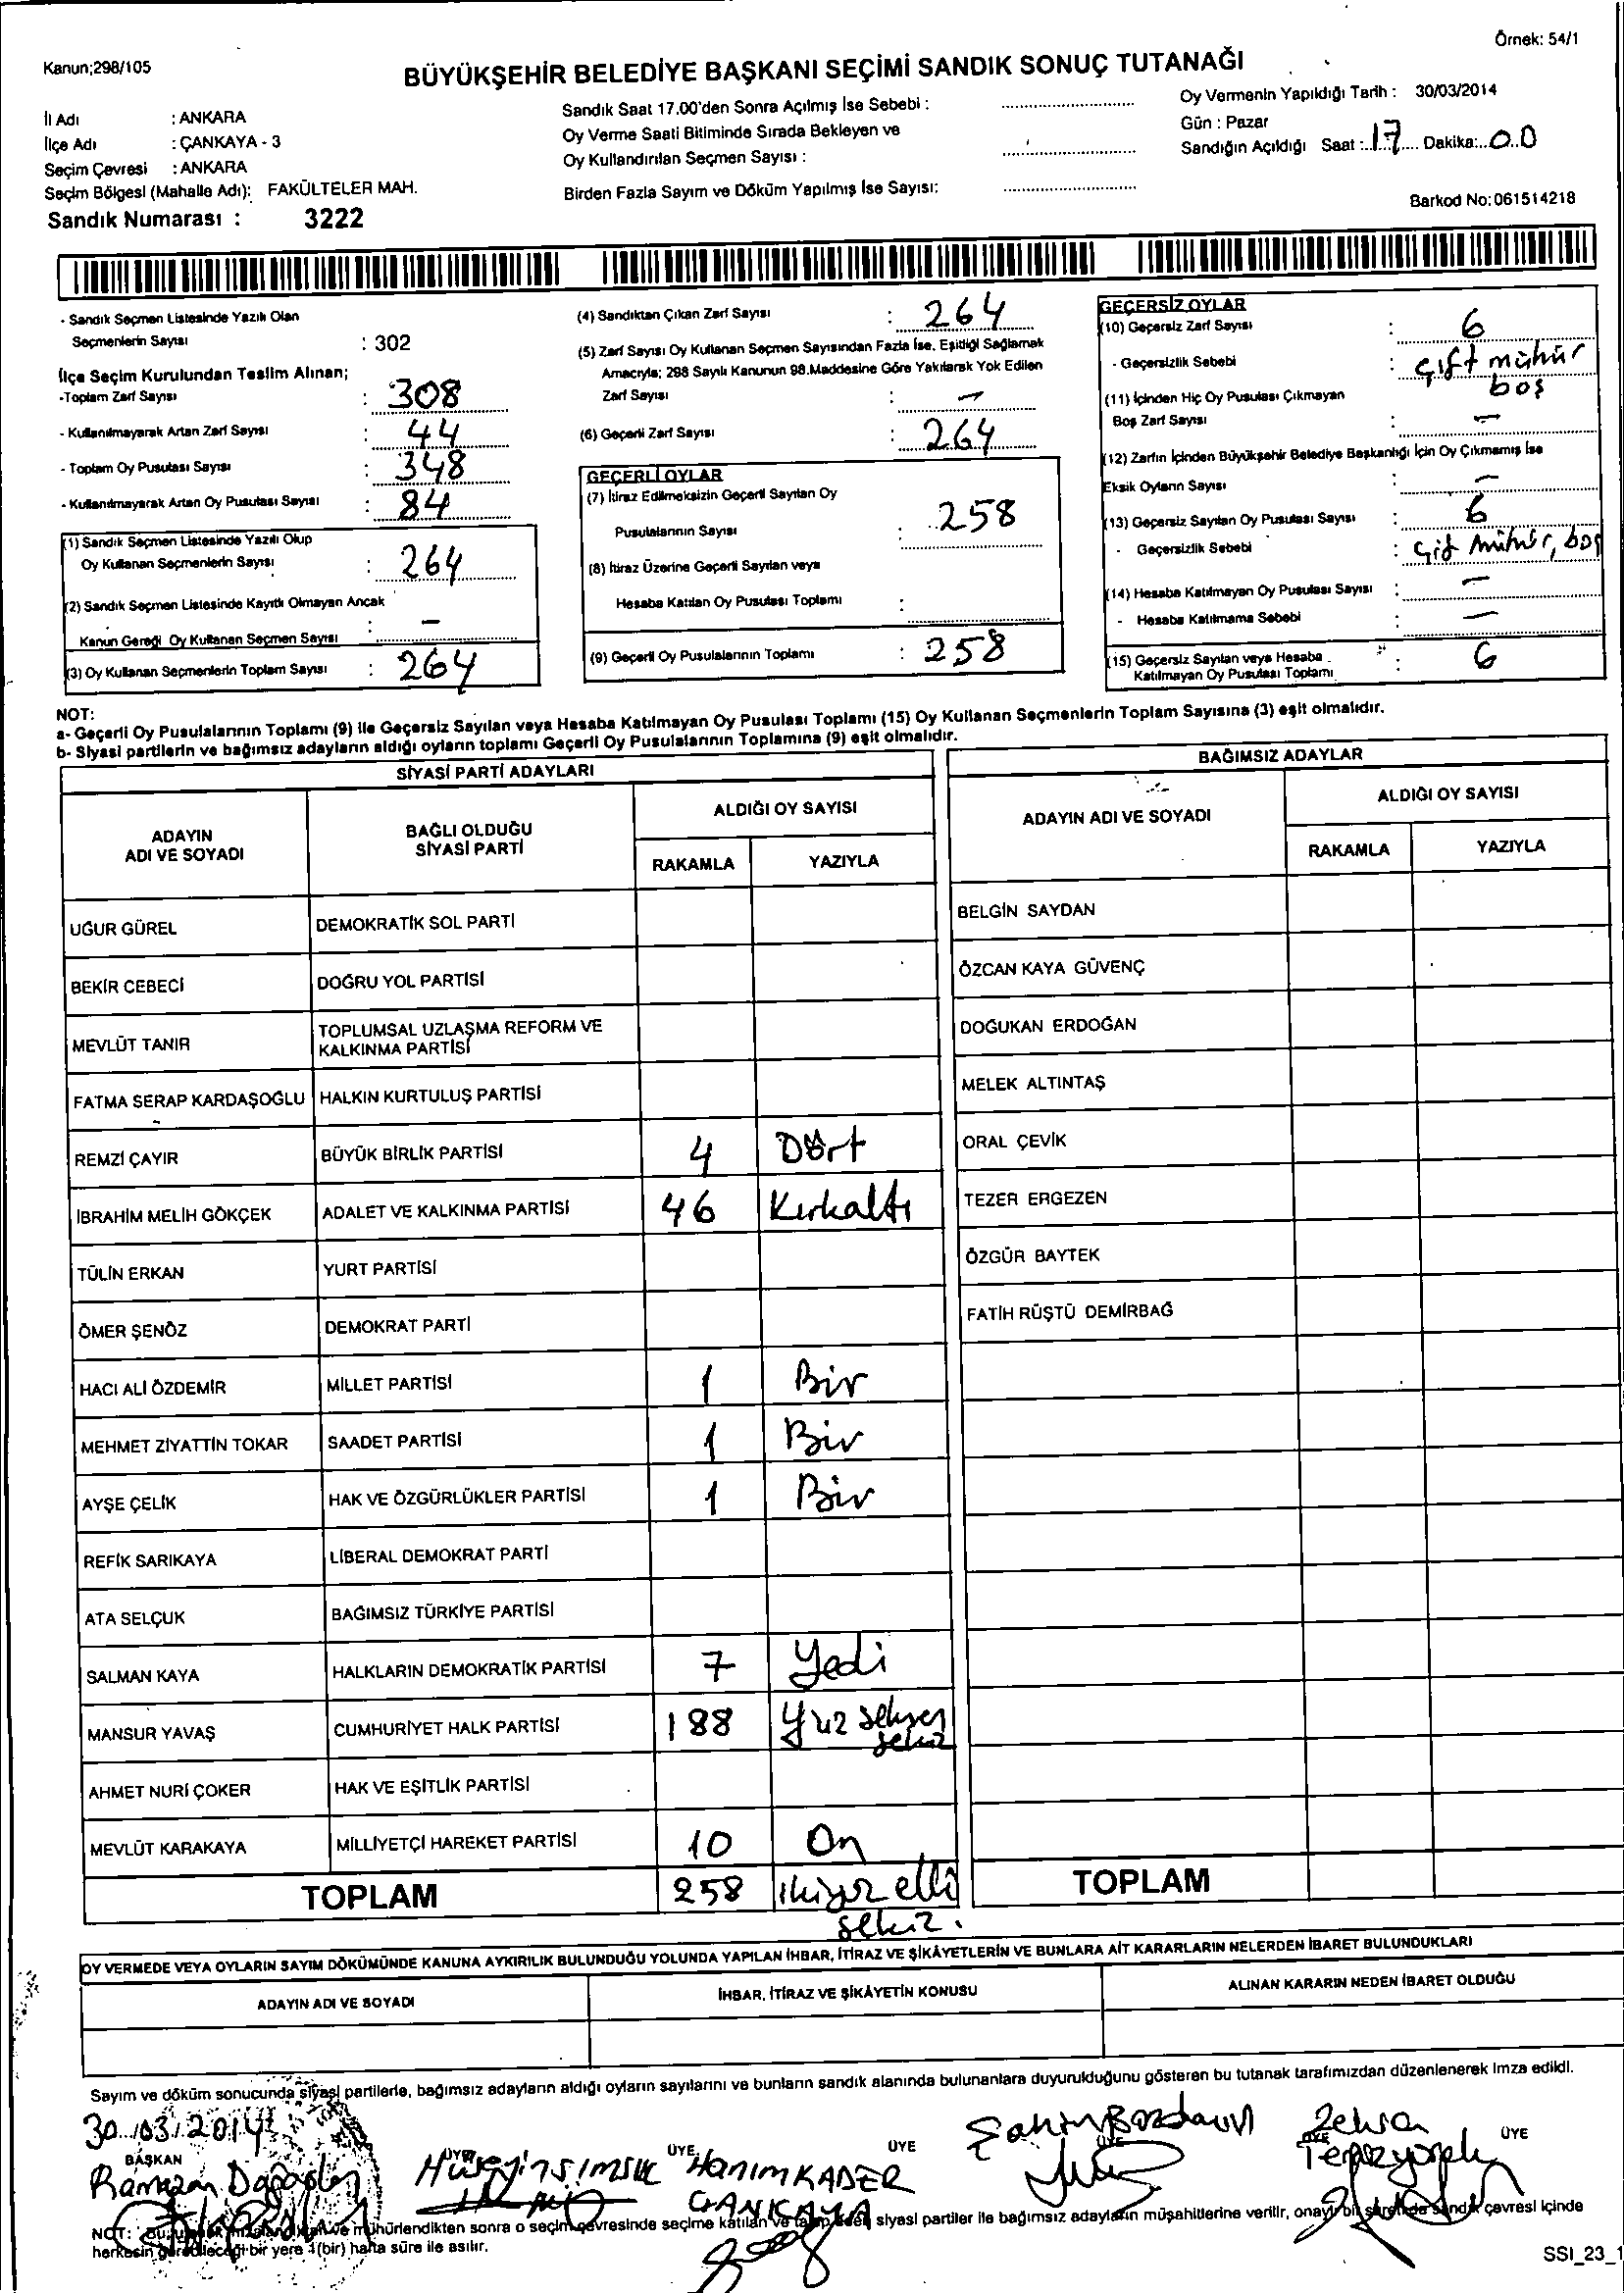 Örnek: 54/1
Kanun;298/105
BÜYÜKŞEHİR BELEDİYE BAŞKANI SEÇİMİ SANDIK SONUÇ TUTANAĞI
İl Adı : ANKARA
İlçe Adı : ÇANKAYA - 3
Seçim Çevresi : ANKARA
Seçim Bölgesi (Mahalle Adı): FAKÜLTELER MAH.
Sandık Numarası : 3222
Sandık Saat 17.00'den Sonra Açılmış İse Sebebi :
Oy Verme Saati Bitiminde Sırada Bekleyen ve
Oy Kullandırılan Seçmen Sayısı :
Birden Fazla Sayım ve Döküm Yapılmış İse Sayısı:
Oy Vermenin Yapıldığı Tarih : 30/03/2014
Gün : Pazar
Sandığın Açıldığı Saat : 17 Dakika: 00
Barkod No:061514218
- Sandık Seçmen Listesinde Yazılı Olan
Seçmenlerin Sayısı : 302
İlçe Seçim Kurulundan Teslim Alınan;
-Toplam Zarf Sayısı : 308
- Kullanılmayarak Artan Zarf Sayısı : 44
- Toplam Oy Pusulası Sayısı : 348
- Kullanılmayarak Artan Oy Pusulası Sayısı : 84
(1) Sandık Seçmen Listesinde Yazılı Olup
Oy Kullanan Seçmenlerin Sayısı : 264
(2) Sandık Seçmen Listesinde Kayıtlı Olmayan Ancak
Kanun Gereği Oy Kullanan Seçmen Sayısı : -
(3) Oy Kullanan Seçmenlerin Toplam Sayısı : 264
(4) Sandıktan Çıkan Zarf Sayısı : 264
(5) Zarf Sayısı Oy Kullanan Seçmen Sayısından Fazla İse, Eşitliği Sağlamak
Amacıyla; 298 Sayılı Kanunun 98.Maddesine Göre Yakılarak Yok Edilen
Zarf Sayısı : -
(6) Geçerli Zarf Sayısı : 264
GEÇERLİ OYLAR
(7) İtiraz Edilmeksizin Geçerli Sayılan Oy
Pusulalarının Sayısı : 258
(8) İtiraz Üzerine Geçerli Sayılan veya
Hesaba Katılan Oy Pusulası Toplamı :
(9) Geçerli Oy Pusulalarının Toplamı : 258
GEÇERSİZ OYLAR
(10) Geçersiz Zarf Sayısı : 6
- Geçersizlik Sebebi : çift mühür
boş
(11) İçinden Hiç Oy Pusulası Çıkmayan
Boş Zarf Sayısı : -
(12) Zarfın İçinden Büyükşehir Belediye Başkanlığı İçin Oy Çıkmamış İse
Eksik Oyların Sayısı : -
(13) Geçersiz Sayılan Oy Pusulası Sayısı : 6
- Geçersizlik Sebebi : çift mühür, boş
(14) Hesaba Katılmayan Oy Pusulası Sayısı : -
- Hesaba Katılmama Sebebi : -
(15) Geçersiz Sayılan veya Hesaba
Katılmayan Oy Pusulası Toplamı : 6
NOT:
a- Geçerli Oy Pusulalarının Toplamı (9) ile Geçersiz Sayılan veya Hesaba Katılmayan Oy Pusulası Toplamı (15) Oy Kullanan Seçmenlerin Toplam Sayısına (3) eşit olmalıdır.
b- Siyasi partilerin ve bağımsız adayların aldığı oyların toplamı Geçerli Oy Pusulalarının Toplamına (9) eşit olmalıdır.
SİYASİ PARTİ ADAYLARI
ADAYIN
ADI VE SOYADI
BAĞLI OLDUĞU
SİYASİ PARTİ
ALDIĞI OY SAYISI
RAKAMLA YAZIYLA
UĞUR GÜREL DEMOKRATİK SOL PARTİ
BEKİR CEBECİ DOĞRU YOL PARTİSİ
MEVLÜT TANIR TOPLUMSAL UZLAŞMA REFORM VE
KALKINMA PARTİSİ
FATMA SERAP KARDAŞOĞLU HALKIN KURTULUŞ PARTİSİ
REMZİ ÇAYIR BÜYÜK BİRLİK PARTİSİ 4 Dört
İBRAHİM MELİH GÖKÇEK ADALET VE KALKINMA PARTİSİ 46 Kırkaltı
TÜLİN ERKAN YURT PARTİSİ
ÖMER ŞENÖZ DEMOKRAT PARTİ
HACI ALİ ÖZDEMİR MİLLET PARTİSİ 1 Bir
MEHMET ZİYATTİN TOKAR SAADET PARTİSİ 1 Bir
AYŞE ÇELİK HAK VE ÖZGÜRLÜKLER PARTİSİ 1 Bir
REFİK SARIKAYA LİBERAL DEMOKRAT PARTİ
ATA SELÇUK BAĞIMSIZ TÜRKİYE PARTİSİ
SALMAN KAYA HALKLARIN DEMOKRATİK PARTİSİ 7 Yedi
MANSUR YAVAŞ CUMHURİYET HALK PARTİSİ 188 Yüz seksen
sekiz
AHMET NURİ ÇOKER HAK VE EŞİTLİK PARTİSİ
MEVLÜT KARAKAYA MİLLİYETÇİ HAREKET PARTİSİ 10 On
TOPLAM 258 ikiyüz elli
sekiz.
BAĞIMSIZ ADAYLAR
ADAYIN ADI VE SOYADI
ALDIĞI OY SAYISI
RAKAMLA YAZIYLA
BELGİN SAYDAN
ÖZCAN KAYA GÜVENÇ
DOĞUKAN ERDOĞAN
MELEK ALTINTAŞ
ORAL ÇEVİK
TEZER ERGEZEN
ÖZGÜR BAYTEK
FATİH RÜŞTÜ DEMİRBAĞ
TOPLAM
OY VERMEDE VEYA OYLARIN SAYIM DÖKÜMÜNDE KANUNA AYKIRILIK BULUNDUĞU YOLUNDA YAPILAN İHBAR, İTİRAZ VE ŞİKÂYETLERİN VE BUNLARA AİT KARARLARIN NELERDEN İBARET BULUNDUKLARI
ADAYIN ADI VE SOYADI İHBAR, İTİRAZ VE ŞİKÂYETİN KONUSU ALINAN KARARIN NEDEN İBARET OLDUĞU
Sayım ve döküm sonucunda siyasi partilerle, bağımsız adayların aldığı oyların sayılarını ve bunların sandık alanında bulunanlara duyurulduğunu gösteren bu tutanak tarafımızdan düzenlenerek imza edildi.
30/03/2014
BAŞKAN ÜYE ÜYE ÜYE ÜYE ÜYE ÜYE
Ramazan
Hüseyin ŞİMŞEK
Hanım KADER
ÇANKAYA
Şahin Bozdawn
Zehra
NOT: Bu tutanak imzalandıktan ve mühürlendikten sonra o seçim çevresinde seçime katılan ve talep eden siyasi partiler ile bağımsız adayların müşahitlerine verilir, onaylı bir suretinde sandık çevresi içinde
herkesin görebileceği bir yere 1(bir) hafta süre ile asılır.
SSI_23_1